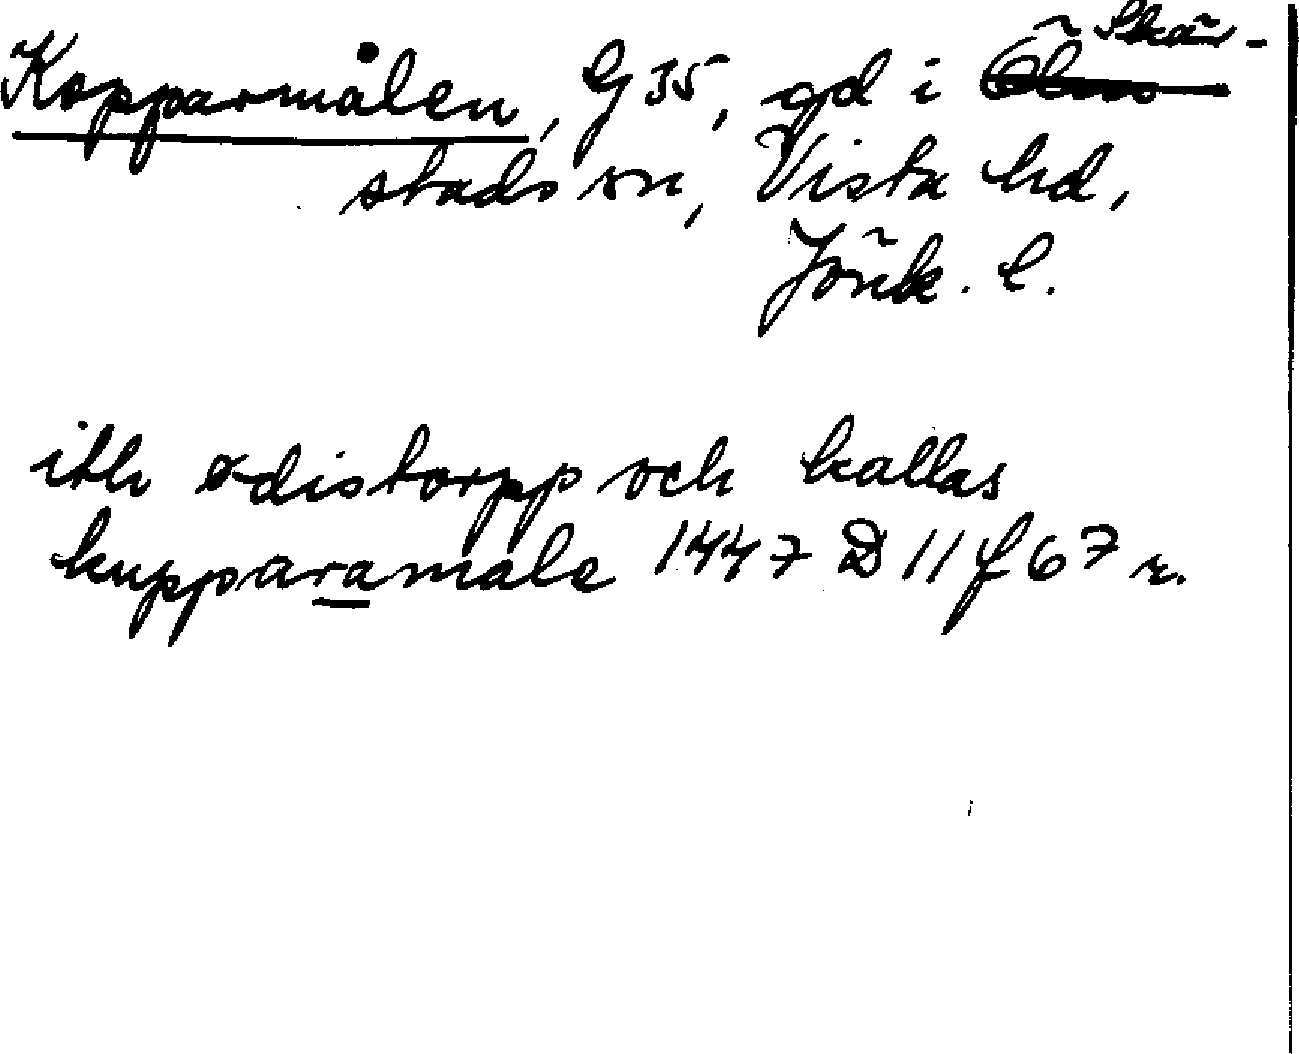 Kopparmålen, G 35, gd i Skär-
stads sn, Vista hd,
Jönk. l.
ith ødistorpp och kallas
kupparamale 1447 D 11 f 67 r.